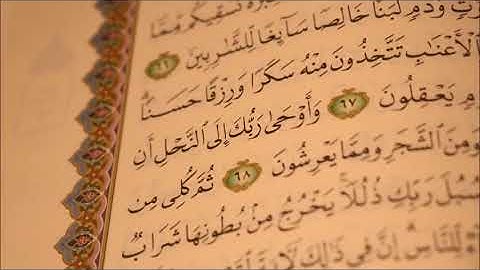 ـرث ودم لبنا خالصا سائغا للشاربين ٦٦
الأعناب تتخذون منه سكرا ورزقا حسنا
م يعقلون ٦٧ وأوحى ربك إلى النحل أن
ومن الشجر ومما يعرشون ٦٨ ثم كلي من
سبل ربك ذللا يخرج من بطونها شراب
للناس إن في ذلك لآية